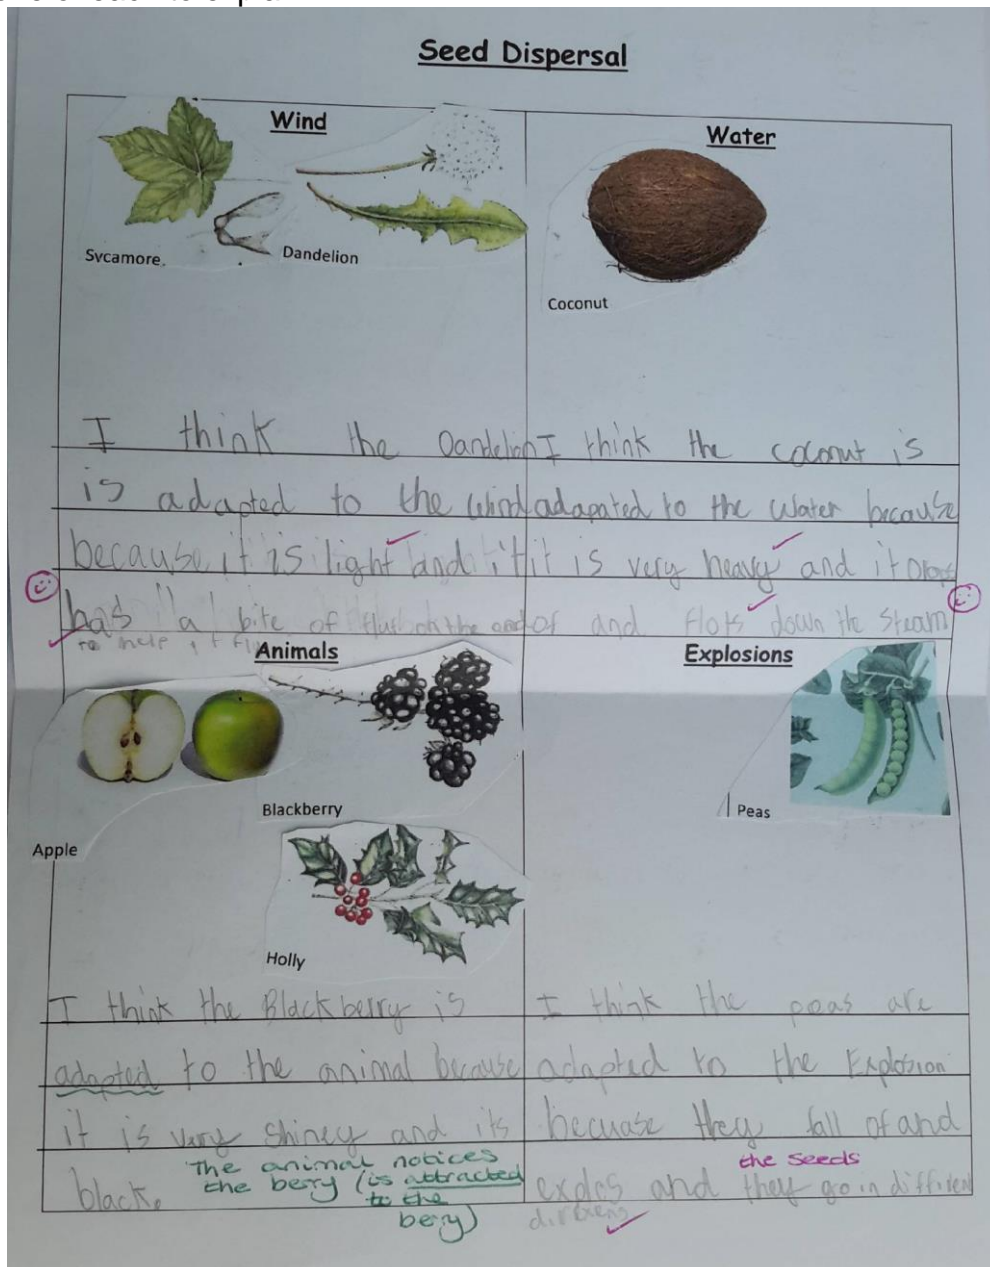 Seed Dispersal
Wind
Sycamore
Dandelion
I think the Dandelion
is adapted to the wind
because it is light and it
has a bite of fluf on the end of
to help it fly
Water
Coconut
I think the coconut is
adapated to the water because
it is very heavy and it
and flots down the steam
Animals
Apple
Blackberry
Holly
I think the Blackberry is
adapted to the animal because
it is very shiney and its
black.
The animal notices
the berry (is attracted
to the
berry)
Explosions
Peas
I think the peas are
adapted to the Explosion
becuase they fall of and
the seeds
explos and they go in diffirent